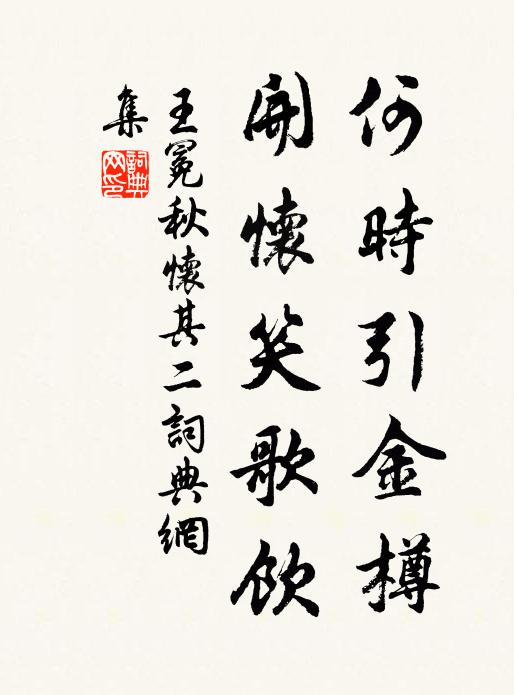 何時引金樽
開懷笑歌飲
王冕秋懷其二詞典網
集
詞典
网印